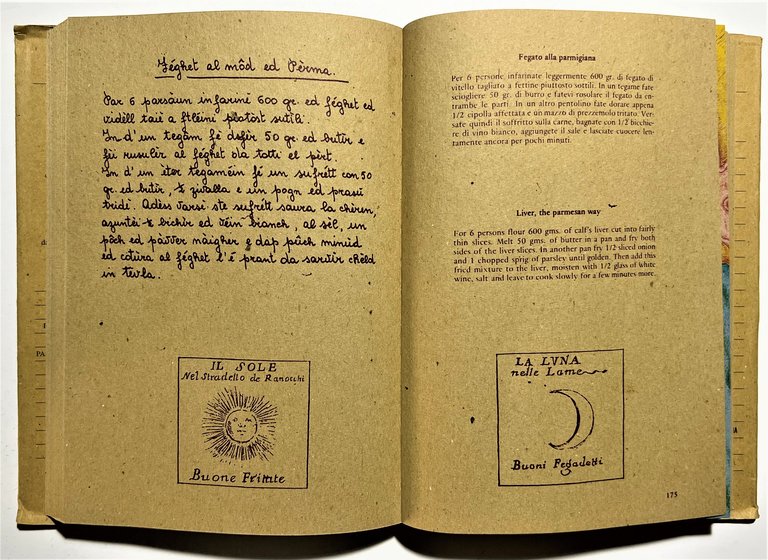 Féghet al môd ed Pèrma.
Par 6 parsåun infarinè 600 gr. ed féghet ed
vidèll taiè a ftleini piotòst sutili.
In d'un tegam fé desfèr 50 gr. ed butir e
féi rusulèr al féghet da totti el pèrt.
In d'un èter tegamèin fé un sufrétt con 50
gr. ed butir, ½ zivalla e un pogn ed prasù
tridè. Adèss varsè ste sufrétt saura la chèren,
azuntèi ½ bichir ed vèin bianch, al sèl, un
pôch ed pàvver nàigher e dap pûch minud
ed cotura al féghet l'è prant da sarvir chèld
in tevla.
IL SOLE
Nel Stradello de Ranocchi
Buone Frittate
Fegato alla parmigiana
Per 6 persone infarinate leggermente 600 gr. di fegato di
vitello tagliato a fettine piuttosto sottili. In un tegame fate
sciogliere 50 gr. di burro e fatevi rosolare il fegato da en-
trambe le parti. In un altro pentolino fate dorare appena
1/2 cipolla affettata e un mazzo di prezzemolo tritato. Ver-
sate quindi il soffritto sulla carne, bagnate con 1/2 bicchie-
re di vino bianco, aggiungete il sale e lasciate cuocere len-
tamente ancora per pochi minuti.
Liver, the parmesan way
For 6 persons flour 600 gms. of calf's liver cut into fairly
thin slices. Melt 50 gms. of butter in a pan and fry both
sides of the liver slices. In another pan fry 1/2 sliced onion
and 1 chopped sprig of parsley until golden. Then add this
fried mixture to the liver, moisten with 1/2 glass of white
wine, salt and leave to cook slowly for a few minutes more.
LA LVNA
nelle Lame
Buoni Fegadetti
175